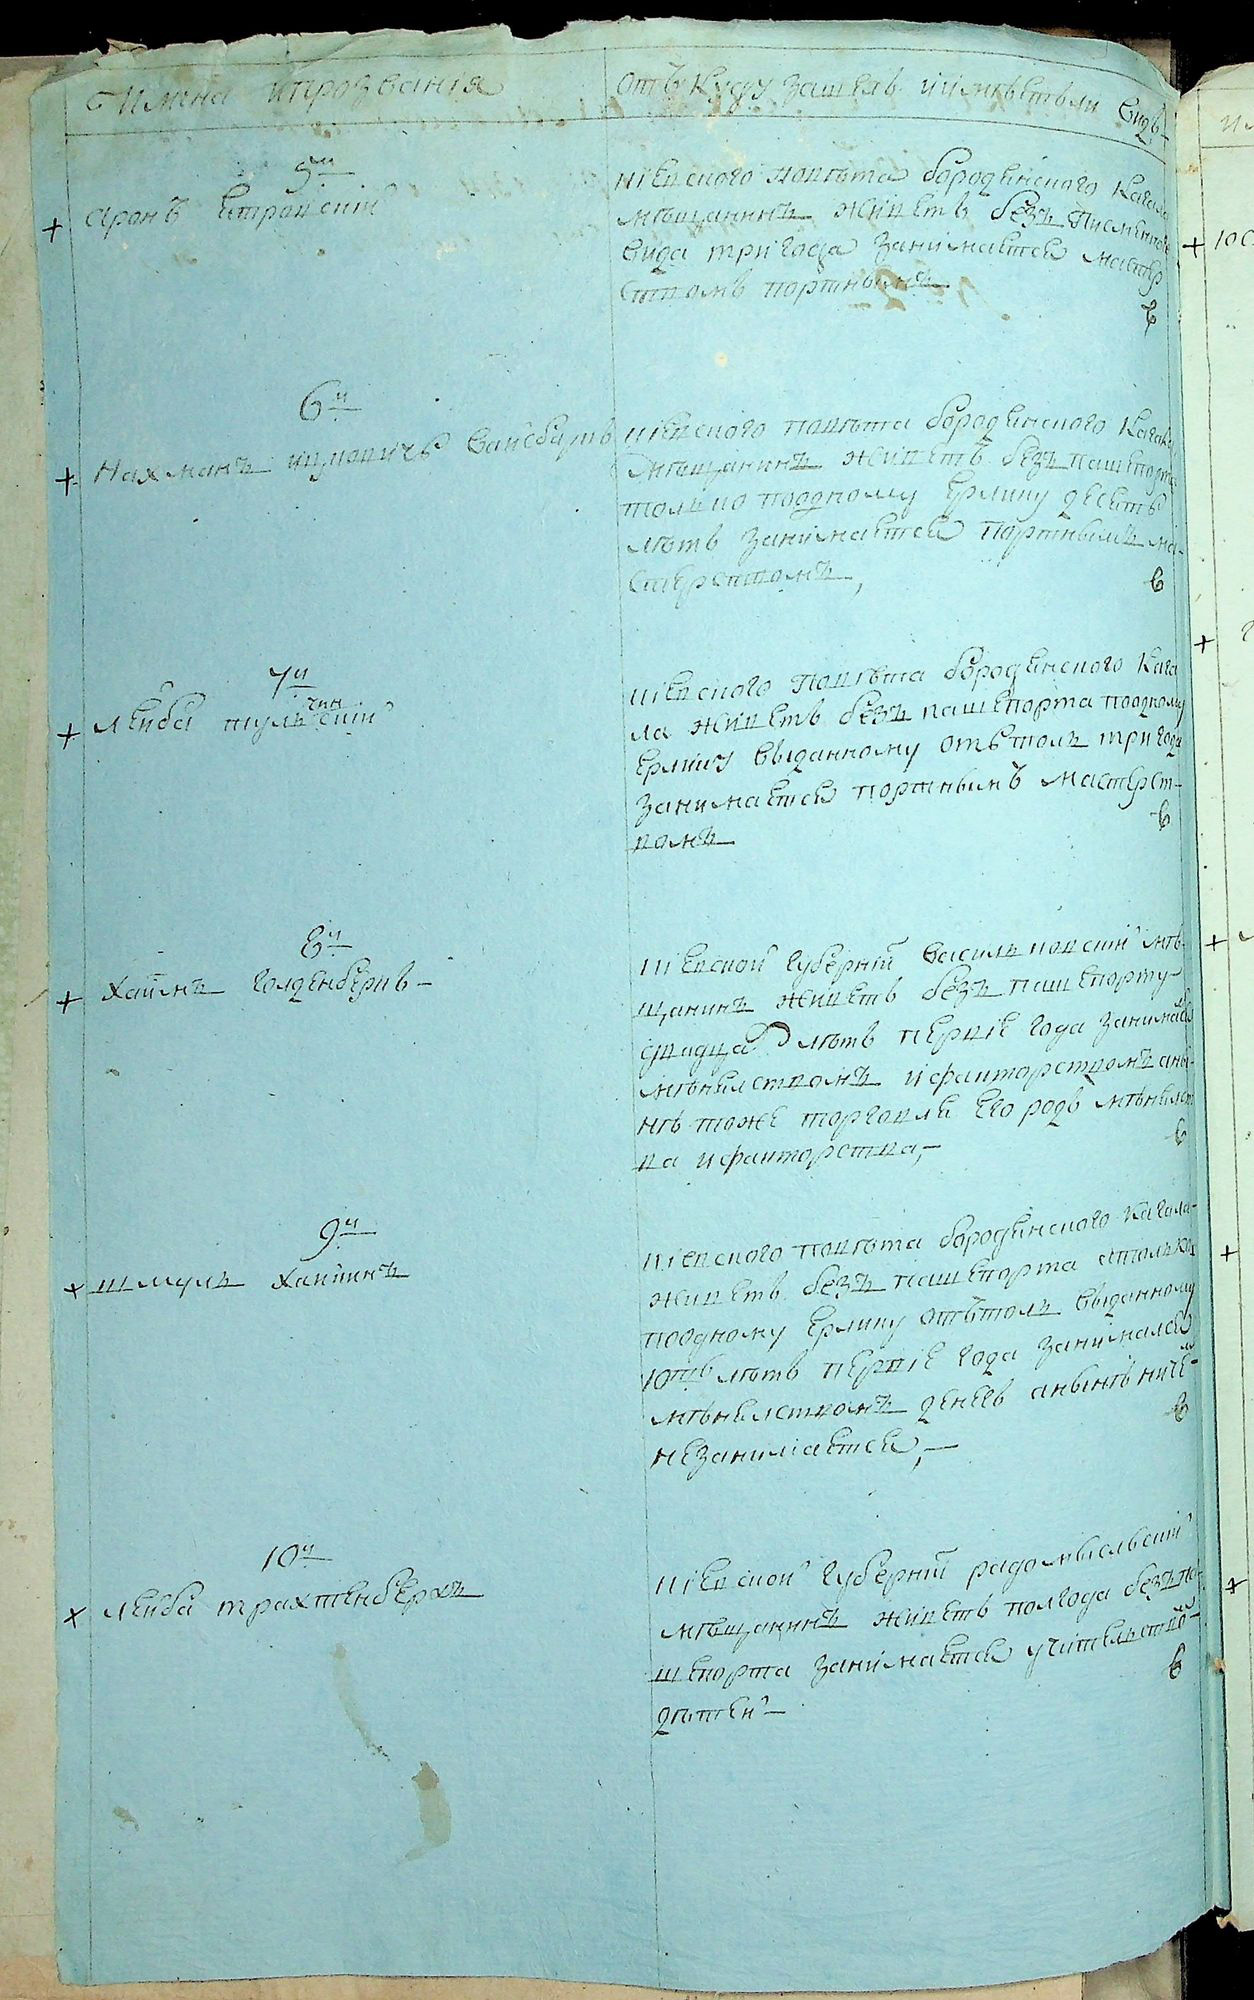 Имена и прозвания
отъ куду зашелъ и имеетъли видъ
5й
+ Аронъ Островскій
Кіевского повѣта бородянского кагала
мѣщанинъ живетъ безъ писменного
вида три года занимается мастер
ствомъ портнымъ
в
6й
+ Нахманъ Ицковичъ Вайсбать
Кіевского повѣта бородянского кагала
мѣщанинъ живетъ безъ пашепорта
только поодному ерлику десеть
лѣтъ занимается портнымъ ма-
стерствомъ,
в
7й
чин
+ Лейба Тульскій
Кіевского повѣта бородянского кага
ла живетъ безъ пашепорта поодному
ерлику выданному отътоль три года
занимается портнымъ мастерст-
вомъ
в
8й
+ Хаимъ Голденберкъ
Кіевской губерніи васильковскій мѣ-
щанинъ живетъ безъ пашепорту
двадцать лѣтъ первіе года занимался
мѣнялствомъ и факторствомъ аны-
нѣ тоже торговля его родъ мѣнялст
ва и факторства,-
в
9й
+ Шмуль Хаикинъ
Кіевского повѣта бородянского кагала-
живетъ безъ пашепорта атолько
поодному ерлику отътоль выданному
10ть лѣтъ первіе года занимался
мѣнялствомъ денегъ анынѣ ничѣм
незанимается,-
в
10й
+ Лейба Трахтенберхъ
Кіевской губерніи радомысльскій
мѣщанинъ живетъ полгода безъ па-
шепорта занимается учительство
дѣтей
в